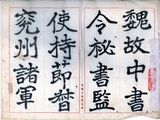 魏故中書
令秘書監
使持節督
兖州諸軍